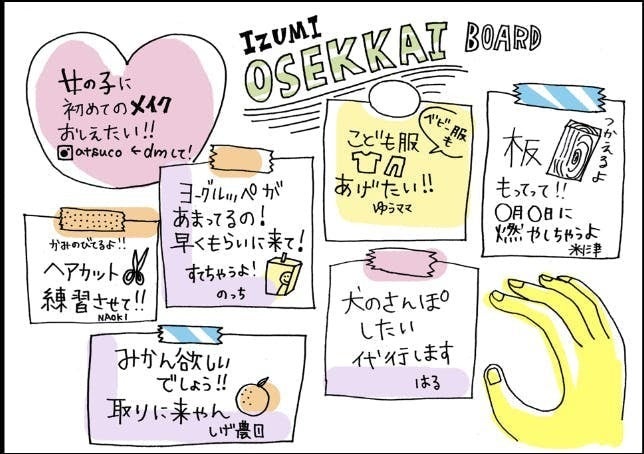 IZUMI
OSEKKAI BOARD
女の子に
初めてのメイク
おしえたい!!
atsuco ←dmして!
ヨーグルッペが
あまってるの!
早くもらいに来て!
すてちゃうよ!
のっち
こども服
ベビー服も
あげたい!!
ゆうママ
板
つかえるよ
もってって!!
〇月〇日に
燃やしちゃうよ
米津
かみのびてるよ!!
ヘアカット
練習させて!!
NAOKI
犬のさんぽ
したい
代行します
はる
みかん欲しい
でしょう!!
取りに来やん
しげ農園